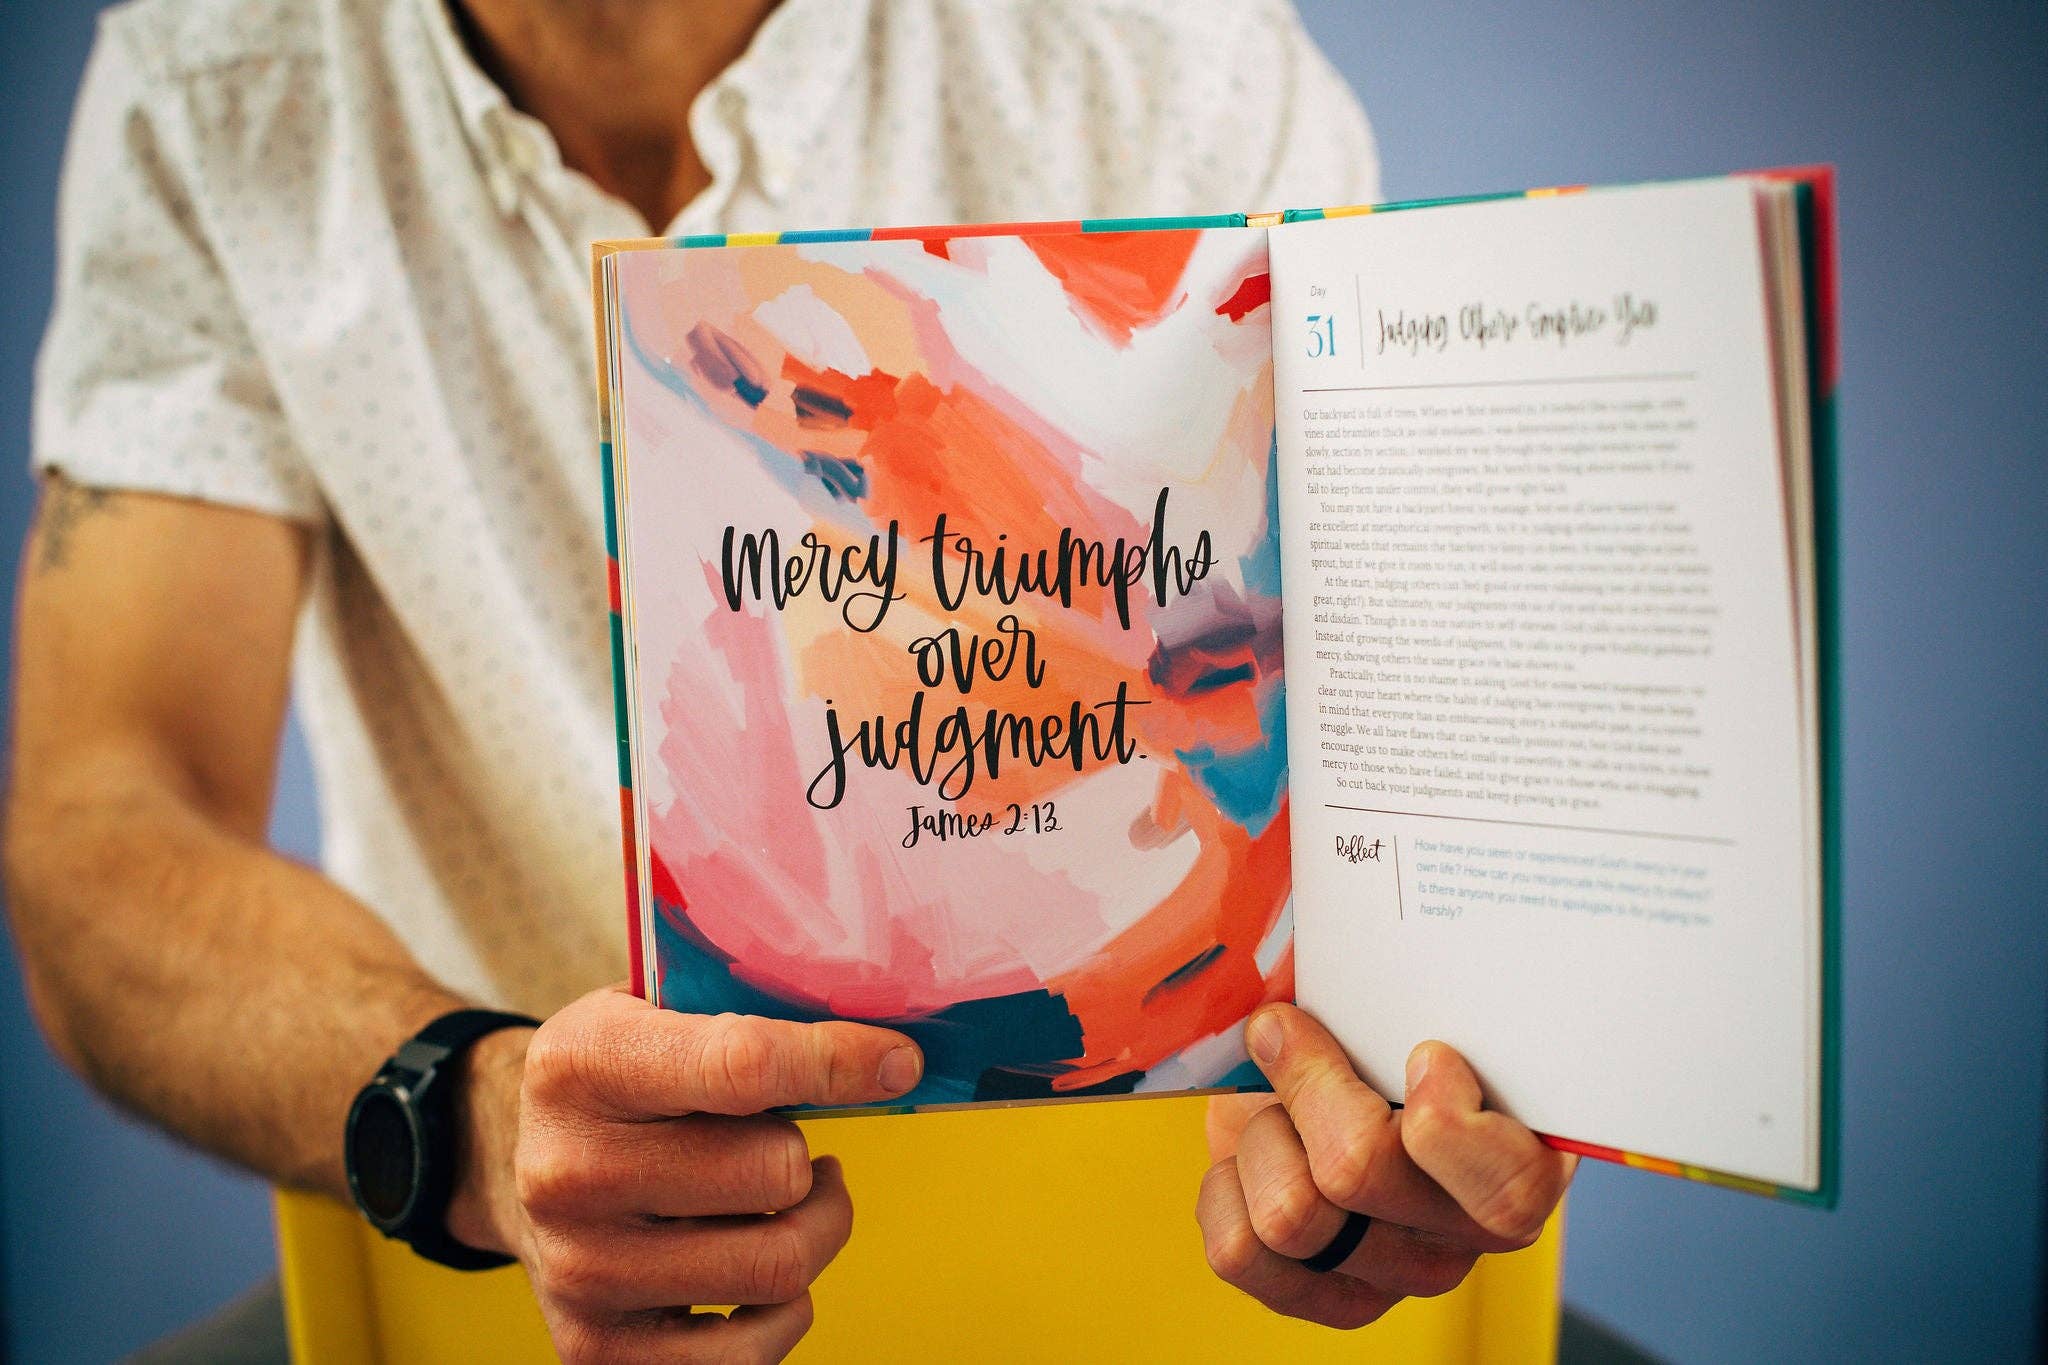 Mercy triumphs
over
judgment.
James 2:13
Day
31
Judging Others Empties You
Our backyard is full of trees. When we first moved in, it looked like a jungle, with
vines and brambles thick as
slowly, section by section, I worked my way through the tangled
what had become drastically overgrown. But here's the thing about weeds: If you
fail to keep them under control, they will grow right back.
You may not have a backyard forest to manage, but we all
are excellent at metaphorical overgrowth.
spiritual weeds that remains the hardest to keep cut down.
sprout, but if we give it room to
At the start, judging others can feel good or even
great, right?). But ultimately, our judgments
and disdain. Though it is in our nature to
Instead of growing the weeds of judgment, He calls us to grow
mercy, showing others the same grace He has shown us.
Practically, there is no shame in asking God for some weed management
clear out your heart where the habit of judging has overgrown. We must keep
in mind that everyone has an embarrassing story, a shameful past, or a
struggle. We all have flaws that can be easily pointed out, but God does not
encourage us to make others feel small or unworthy. He calls us to
mercy to those who have failed, and to give grace to those who are struggling.
So cut back your judgments and keep growing in grace.
Reflect
How have you seen or experienced God's mercy in your
own life? How can you reciprocate His mercy to others?
Is there anyone you need to apologize to for judging too
harshly?